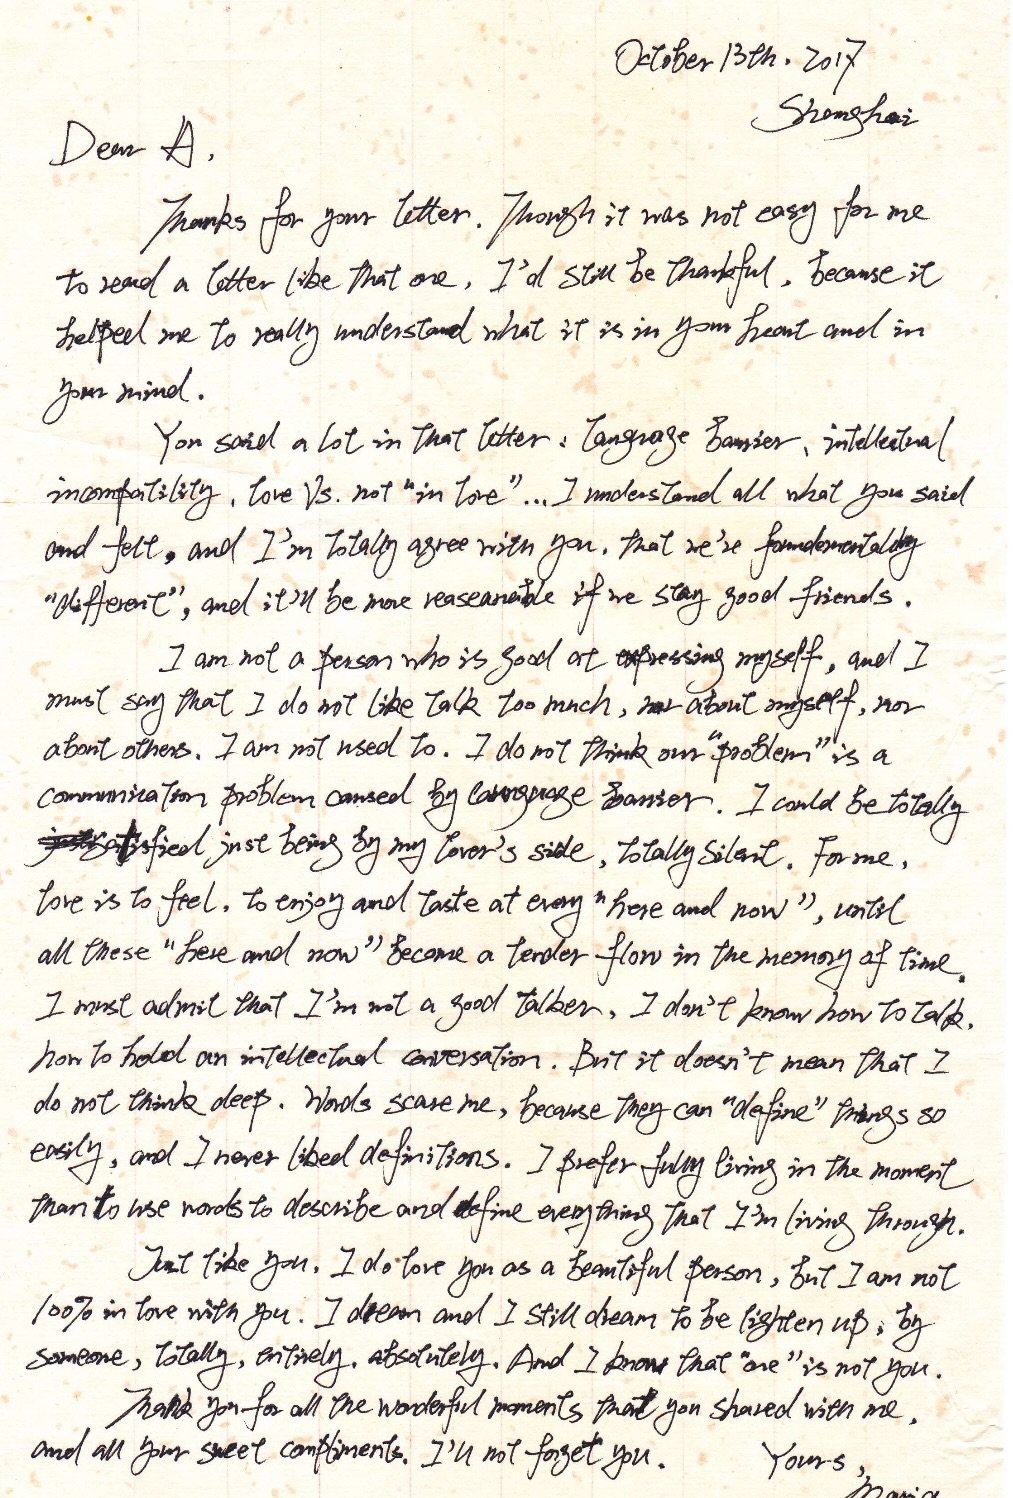 October 13th. 2017
Shanghai
Dear A,
Thanks for your letter. Though it was not easy for me
to read a letter like that one, I'd still be thankful, because it
helped me to really understand what it is in your heart and in
your mind.
You said a lot in that letter: language barrier, intellectual
incompatility, love Vs. not "in love"... I understand all what you said
and felt, and I'm totally agree with you, that we're foundementally
"different", and it'll be more reaseanable if we stay good friends.
I am not a person who is good at expressing myself, and I
must say that I do not like talk too much, nor about myself, nor
about others. I am not used to. I do not think our "problem" is a
communication problem caused by language barrier. I could be totally
satisfied just being by my lover's side, totally silent. For me,
love is to feel, to enjoy and taste at every "here and now", until
all these "here and now" become a tender flow in the memory of time.
I must admit that I'm not a good talker, I don't know how to talk,
how to hold an intellectual conversation. But it doesn't mean that I
do not think deep. Words scare me, because they can "define" things so
easily, and I never liked definitions. I prefer fully living in the moment
than to use words to describe and define everything that I'm living through.
Just like you, I do love you as a beautiful person, but I am not
100% in love with you. I dream and I still dream to be lighten up, by
someone, totally, entirely, absolutely. And I know that "one" is not you.
Thank you for all the wonderful moments that you shared with me,
and all your sweet compliments. I'll not forget you.
Yours,
Maria